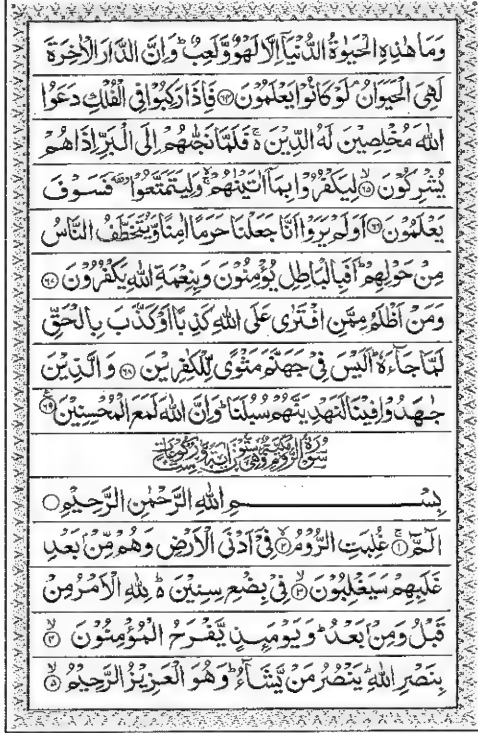 وَمَا هٰذِهِ الْحَيٰوةُ الدُّنْيَآ اِلَّا لَهْوٌ وَّلَعِبٌ ؕ وَاِنَّ الدَّارَ الْاٰخِرَةَ
لَهِىَ الْحَيَوَانُ ۘ لَوْ كَانُوْا يَعْلَمُوْنَ ﴿۶۴﴾ فَاِذَا رَكِبُوْا فِى الْفُلْكِ دَعَوُا
اللّٰهَ مُخْلِصِيْنَ لَهُ الدِّيْنَ ۚ فَلَمَّا نَجّٰىهُمْ اِلَى الْبَرِّ اِذَا هُمْ
يُشْرِكُوْنَ ﴿۶۵﴾ لِيَكْفُرُوْا بِمَآ اٰتَيْنٰهُمْ ۚ وَلِيَتَمَتَّعُوْا فَسَوْفَ
يَعْلَمُوْنَ ﴿۶۶﴾ اَوَلَمْ يَرَوْا اَنَّا جَعَلْنَا حَرَمًا اٰمِنًا وَّيُتَخَطَّفُ النَّاسُ
مِنْ حَوْلِهِمْ ؕ اَفَبِالْبَاطِلِ يُؤْمِنُوْنَ وَبِنِعْمَةِ اللّٰهِ يَكْفُرُوْنَ ﴿۶۷﴾
وَمَنْ اَظْلَمُ مِمَّنِ افْتَرٰى عَلَى اللّٰهِ كَذِبًا اَوْ كَذَّبَ بِالْحَقِّ
لَمَّا جَآءَهٗ ؕ اَلَيْسَ فِىْ جَهَنَّمَ مَثْوًى لِّلْكٰفِرِيْنَ ﴿۶۸﴾ وَالَّذِيْنَ
جٰهَدُوْا فِيْنَا لَنَهْدِيَنَّهُمْ سُبُلَنَا ؕ وَاِنَّ اللّٰهَ لَمَعَ الْمُحْسِنِيْنَ ﴿۶۹﴾
سُوْرَةُ الرُّوْمِ مَكِّيَّةٌ وَّهِىَ سِتُّوْنَ اٰيَةً
بِسْمِ اللّٰهِ الرَّحْمٰنِ الرَّحِيْمِ
الٓمّٓ ﴿۱﴾ غُلِبَتِ الرُّوْمُ ﴿۲﴾ فِىْٓ اَدْنَى الْاَرْضِ وَهُمْ مِّنْۢ بَعْدِ
غَلَبِهِمْ سَيَغْلِبُوْنَ ﴿۳﴾ فِىْ بِضْعِ سِنِيْنَ ؕ لِلّٰهِ الْاَمْرُ مِنْ
قَبْلُ وَمِنْۢ بَعْدُ ؕ وَيَوْمَئِذٍ يَّفْرَحُ الْمُؤْمِنُوْنَ ﴿۴﴾
بِنَصْرِ اللّٰهِ ؕ يَنْصُرُ مَنْ يَّشَآءُ ؕ وَهُوَ الْعَزِيْزُ الرَّحِيْمُ ﴿۵﴾